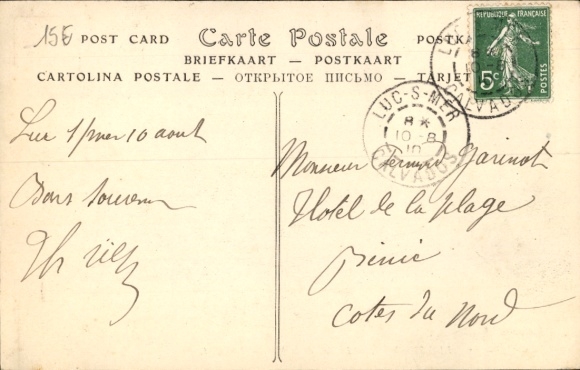 15E
POST CARD Carte Postale POSTKA
BRIEFKAART — POSTKAART
CARTOLINA POSTALE — ОТКРЫТОЕ ПИСЬМО — TARJET
REPUBLIQUE FRANÇAISE
5c
POSTES
LUC-S-MER
8 *
10 - 8
10
CALVADOS
Luc s/mer 10 aout
Bons Souvenirs
Monsieur Fernand Garinot
Hotel de la plage
Binic
Cotes du Nord